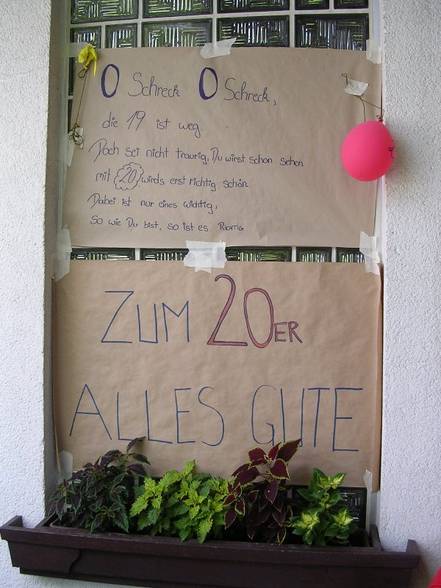 O Schreck O Schreck,
die 19 ist weg
Doch sei nicht traurig, Du wirst schon sehen
mit 20 wirds erst richtig schön.
Dabei ist nur eines wichtig,
So wie Du bist, so ist es Prima
ZUM 20ER
ALLES GUTE